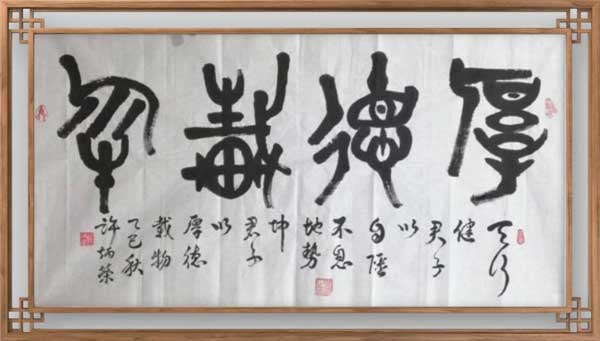 厚德載物
天行
健
君子
以
自强
不息
地勢
坤
君子
以
厚德
載物
乙巳秋
許炳榮